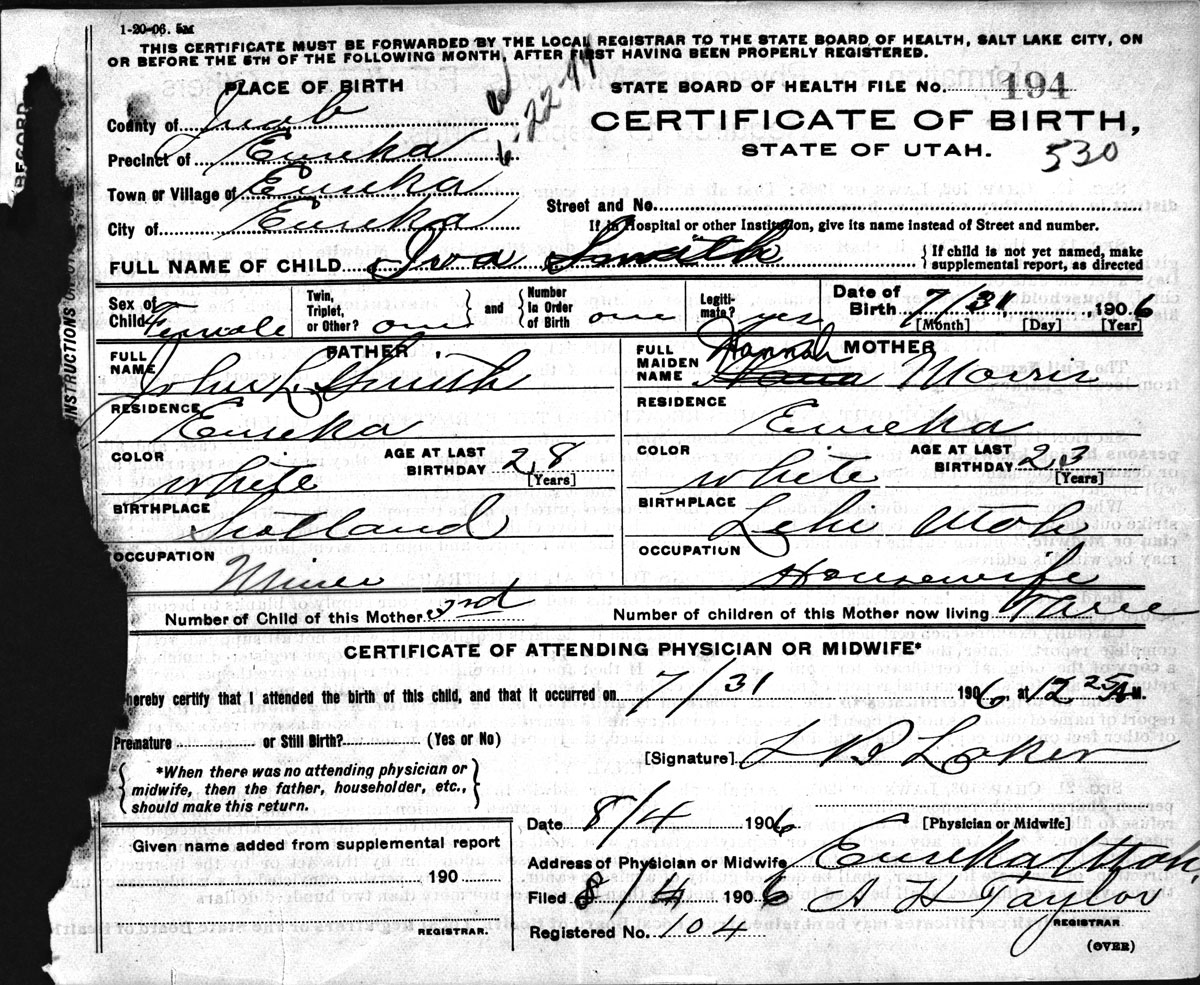 1-20-06. 5M
THIS CERTIFICATE MUST BE FORWARDED BY THE LOCAL REGISTRAR TO THE STATE BOARD OF HEALTH, SALT LAKE CITY, ON
OR BEFORE THE 5TH OF THE FOLLOWING MONTH, AFTER FIRST HAVING BEEN PROPERLY REGISTERED.
RECORD
INSTRUCTIONS
PLACE OF BIRTH
County of Juab
Precinct of Eureka
Town or Village of Eureka
City of Eureka
STATE BOARD OF HEALTH FILE No. 194
CERTIFICATE OF BIRTH,
STATE OF UTAH. 530
Street and No.
If in Hospital or other Institution, give its name instead of Street and number.
FULL NAME OF CHILD Iva Smith { If child is not yet named, make supplemental report, as directed
Sex of Child Female Twin, Triplet, or Other? one } and { Number in Order of Birth one Legiti-mate? yes Date of Birth 7/31, 1906
[Month] [Day] [Year]
FATHER
FULL NAME John L Smith
RESIDENCE Eureka
COLOR White AGE AT LAST BIRTHDAY 28 [Years]
BIRTHPLACE Holland
OCCUPATION Miner
MOTHER
FULL MAIDEN NAME Hannah Morris
RESIDENCE Eureka
COLOR White AGE AT LAST BIRTHDAY 23 [Years]
BIRTHPLACE Lehi Utah
OCCUPATION Housewife
Number of Child of this Mother 3rd Number of children of this Mother now living Three
CERTIFICATE OF ATTENDING PHYSICIAN OR MIDWIFE*
hereby certify that I attended the birth of this child, and that it occurred on 7/31 1906 at 12 25 A.M.
Premature or Still Birth? (Yes or No)
[Signature]
{ *When there was no attending physician or midwife, then the father, householder, etc., should make this return. }
Date 8/4 1906 [Physician or Midwife]
Given name added from supplemental report
190
REGISTRAR.
Address of Physician or Midwife Eureka Utah,
Filed 8/4 1906 A H Taylor
REGISTRAR
Registered No. 104
(OVER)